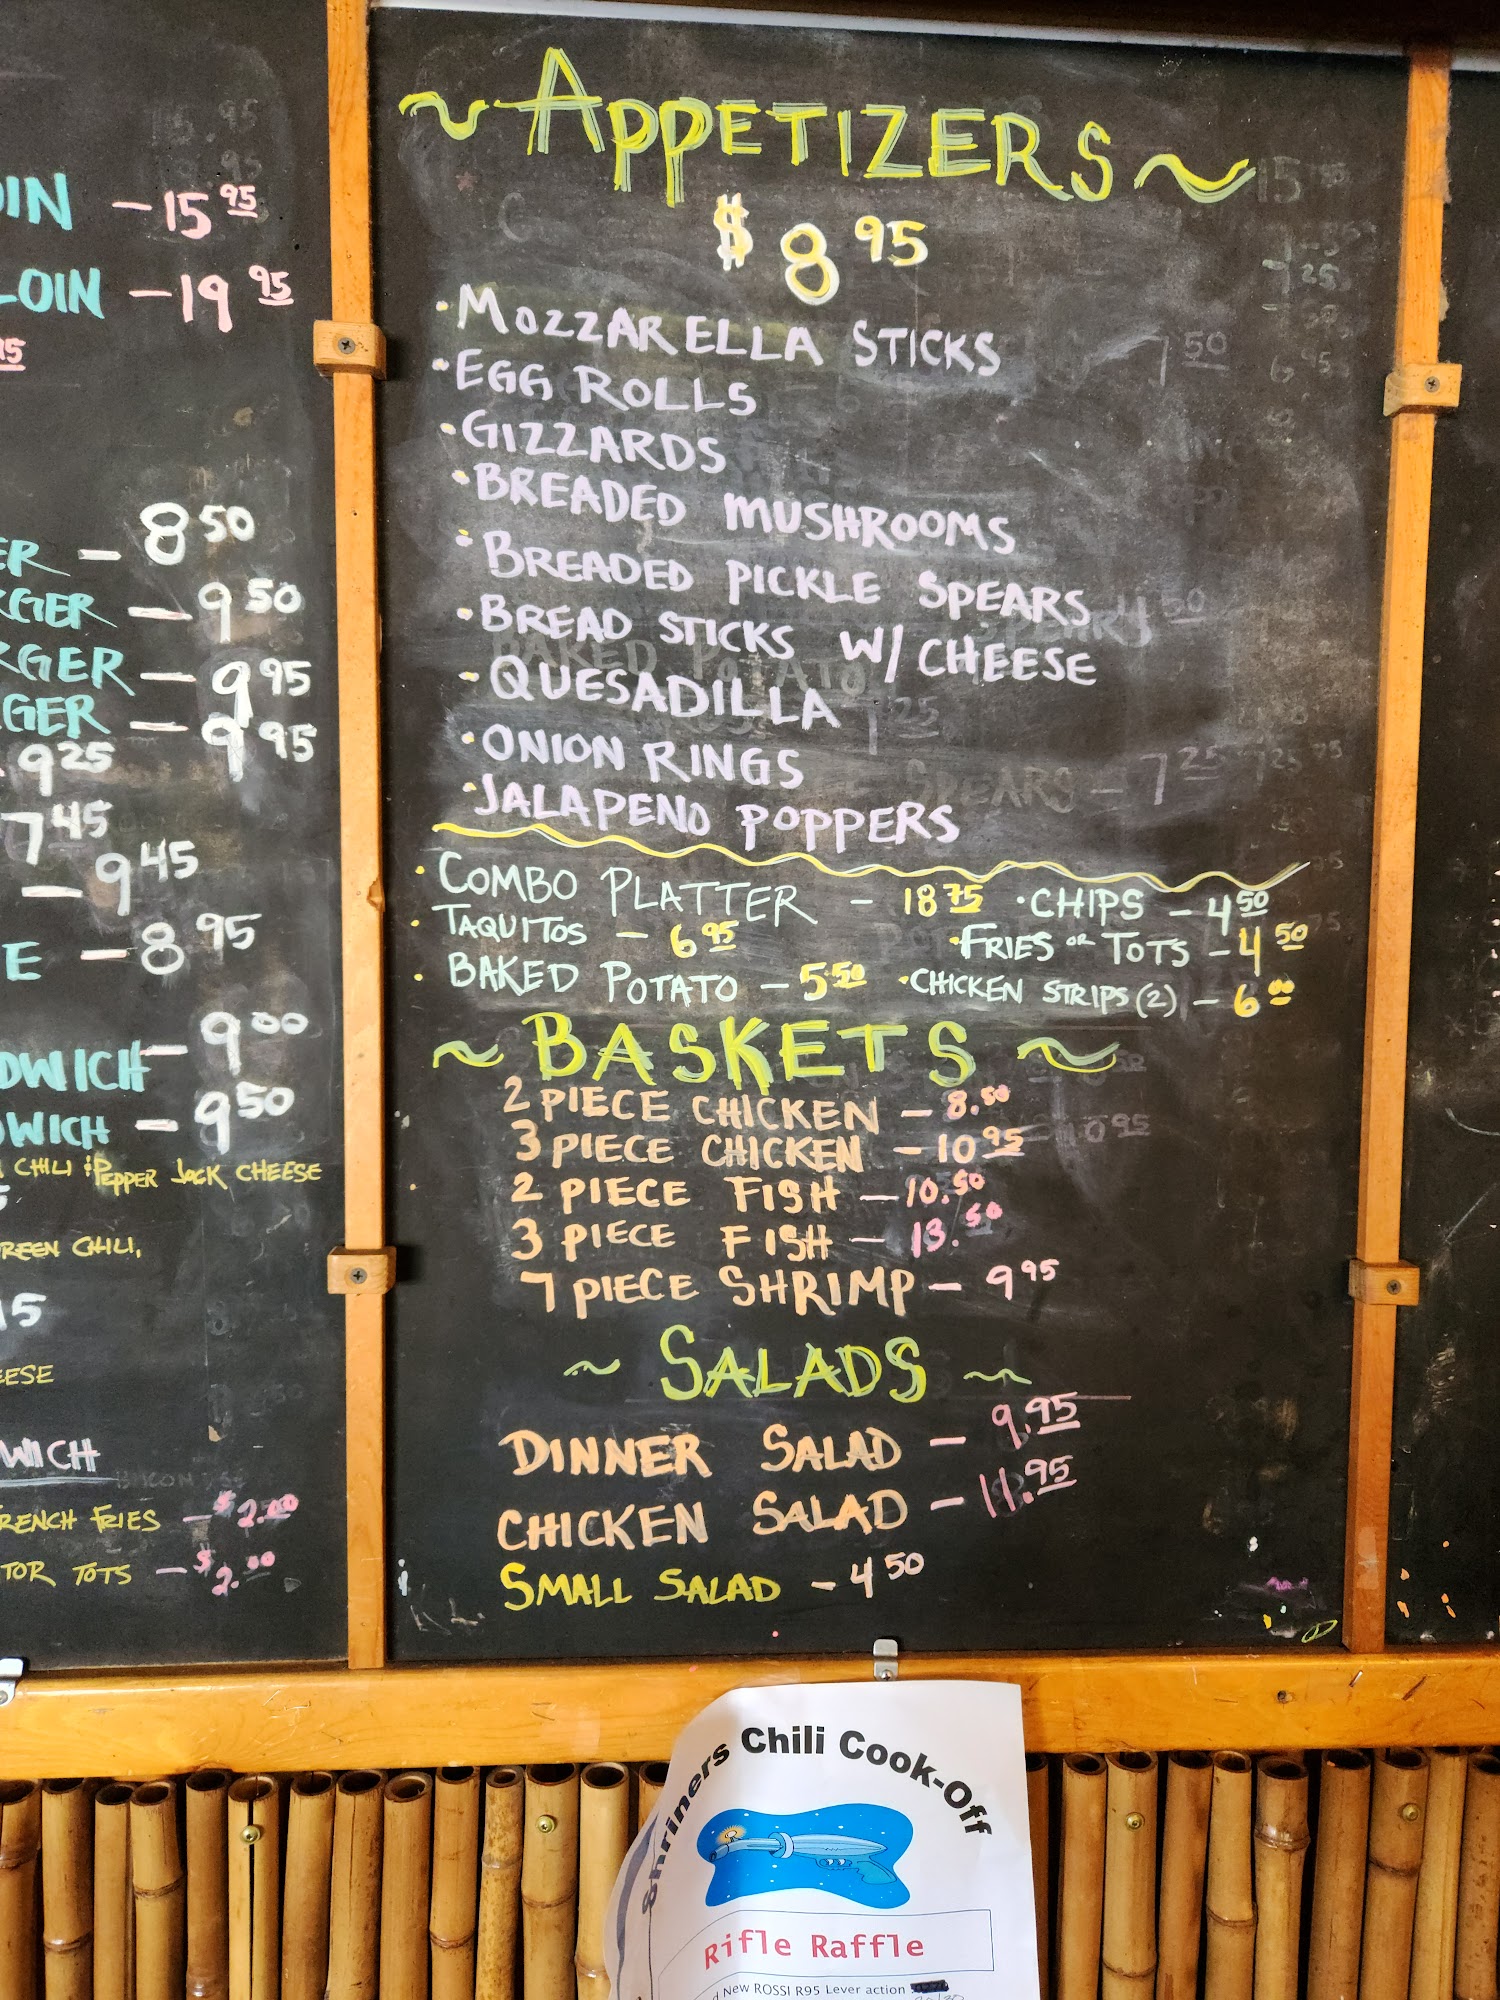 OIN - 15 95
LOIN - 19 95
8 50
ER -
RGER - 9 50
RGER - 9 95
GER - 9 95
9 25
7 45
- 9 45
E - 8 95
9 00
DWICH -
WICH - 9 50
CHILI & PEPPER JACK CHEESE
REEN CHILI,
15
EESE
WICH
RENCH FRIES - $2.00
TOR TOTS - $2.00
~ APPETIZERS ~
$8 95
• MOZZARELLA STICKS
• EGG ROLLS
• GIZZARDS
• BREADED MUSHROOMS
• BREADED PICKLE SPEARS
• BREAD STICKS W/ CHEESE
• QUESADILLA
• ONION RINGS
• JALAPENO POPPERS
• COMBO PLATTER - 18 75 • CHIPS - 4 50
• TAQUITOS - 6 95 • FRIES OR TOTS - 4 50
• BAKED POTATO - 5 50 • CHICKEN STRIPS (2) - 6 00
~ BASKETS ~
2 PIECE CHICKEN - 8.50
3 PIECE CHICKEN - 10 95
2 PIECE FISH - 10.50
3 PIECE FISH - 13.50
7 PIECE SHRIMP - 9 95
~ SALADS ~
DINNER SALAD - 9.95
CHICKEN SALAD - 11.95
SMALL SALAD - 4 50
Shriners Chili Cook-Off
Rifle Raffle
New ROSSI R95 Lever action